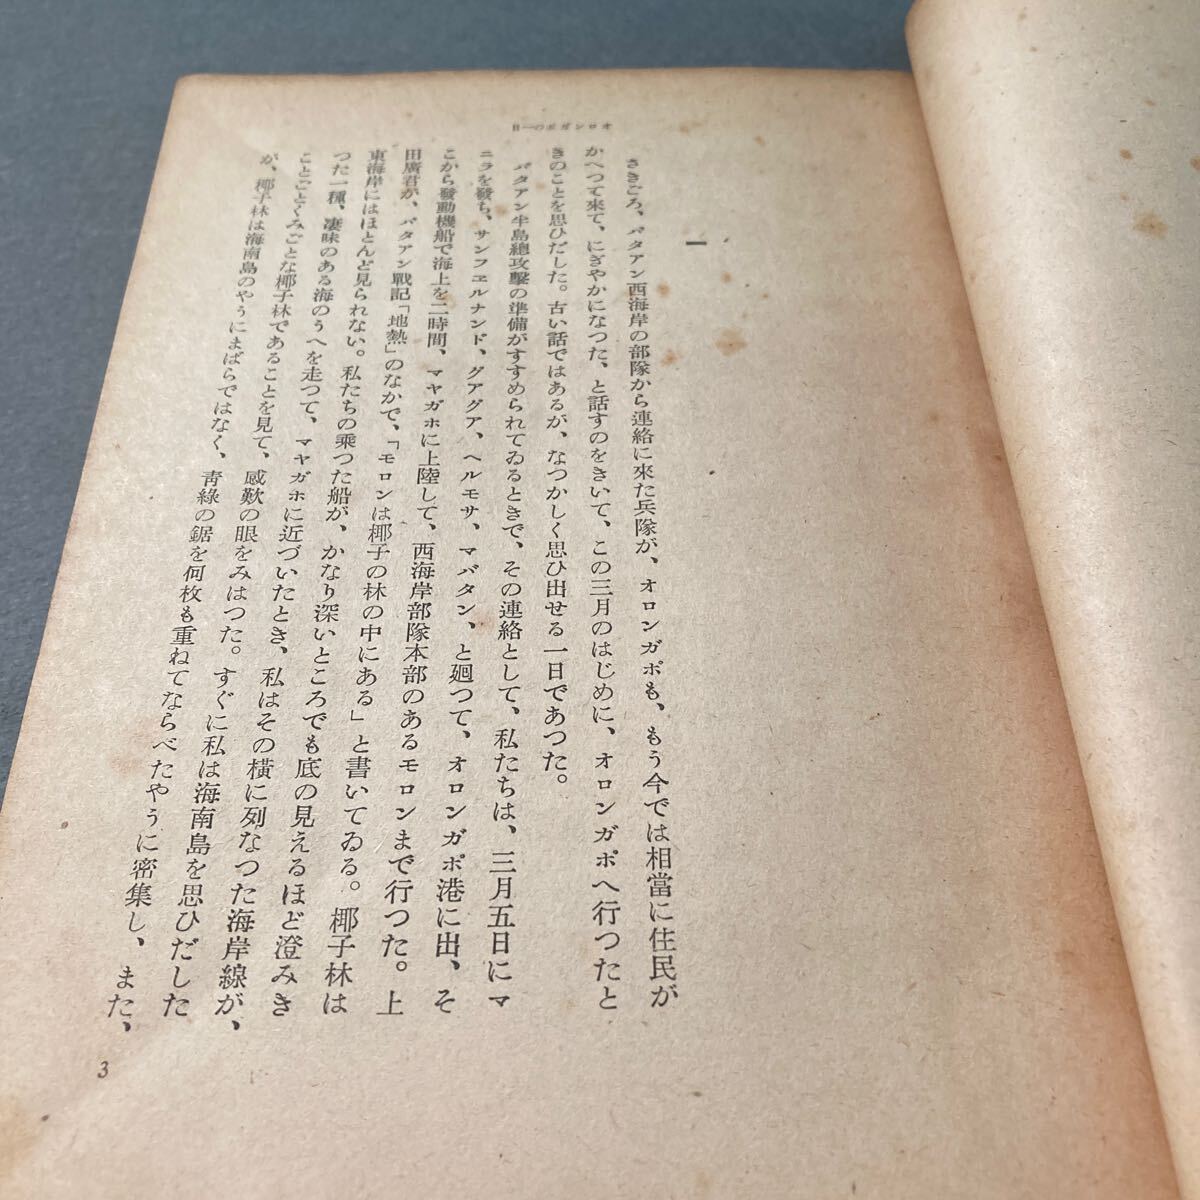 オロンガポの一日
一
さきごろ、バタアン西海岸の部隊から連絡に來た兵隊が、オロンガポも、もう今では相當に住民が
かへつて來て、にぎやかになつた、と話すのをきいて、この三月のはじめに、オロンガポへ行つたと
きのことを思ひだした。古い話ではあるが、なつかしく思ひ出せる一日であつた。
バタアン半島總攻擊の準備がすすめられてゐるときで、その連絡として、私たちは、三月五日にマ
ニラを發ち、サンフエルナンド、グアグア、ヘルモサ、マバタン、と廻つて、オロンガポ港に出、そ
こから發動機船で海上を二時間、マヤガホに上陸して、西海岸部隊本部のあるモロンまで行つた。上
田廣君が、バタアン戰記「地熱」のなかで、「モロンは椰子の林の中にある」と書いてゐる。椰子林は
東海岸にはほとんど見られない。私たちの乘つた船が、かなり深いところでも底の見えるほど澄みき
つた一種、凄味のある海のうへを走つて、マヤガホに近づいたとき、私はその橫に列なつた海岸線が、
ことごとくみごとな椰子林であることを見て、感歎の眼をみはつた。すぐに私は海南島を思ひだした
が、椰子林は海南島のやうにまばらではなく、靑綠の鋸を何枚も重ねてならべたやうに密集し、また、
3